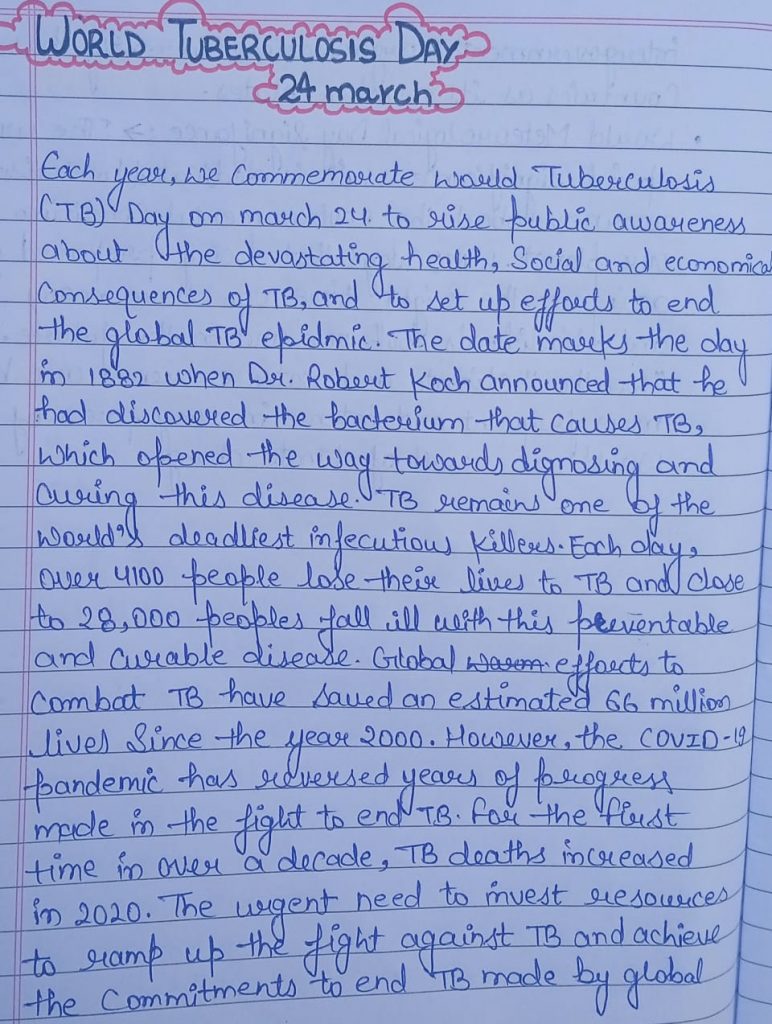 WORLD TUBERCULOSIS DAY
24 march
Each year, we Commemorate world Tuberculosis
(TB) Day on march 24. to rise public awareness
about the devastating health, Social and economical
Consequences of TB, and to set up efforts to end
the global TB epidmic. The date marks the day
in 1882 when Dr. Robert Koch announced that he
had discovered the bacterium that causes TB,
which opened the way towards dignosing and
curing this disease. TB remains one of the
world's deadliest infecutious killers. Each day,
over 4100 people lose their lives to TB and close
to 28,000 peoples fall ill with this preventable
and curable disease. Global efforts to
Combat TB have saved an estimated 66 million
lives Since the year 2000. However, the COVID-19
pandemic has reversed years of progress
made in the fight to end TB. For the first
time in over a decade, TB deaths increased
in 2020. The urgent need to invest resources
to ramp up the fight against TB and achieve
the Commitments to end TB made by global